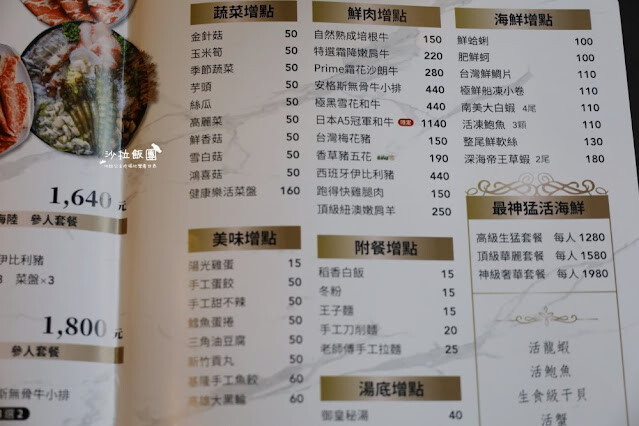 沙拉飯團
1,640元
海陸 參人套餐
伊比利豬
菜盤×3
1,800元
參人套餐
斯無骨牛小排
選2
蔬菜增點
金針菇 50
玉米筍 50
季節蔬菜 50
芋頭 50
絲瓜 50
高麗菜 50
鮮香菇 50
雪白菇 50
鴻喜菇 50
健康樂活菜盤 160
美味增點
陽光雞蛋 15
手工蛋餃 50
手工甜不辣 50
鱈魚蛋捲 50
三角油豆腐 50
新竹貢丸 50
基隆手工魚餃 60
高雄大黑輪 60
鮮肉增點
自然熟成培根牛 150
特選霜降嫩肩牛 220
Prime霜花沙朗牛 280
安格斯無骨牛小排 440
極黑雪花和牛 440
日本A5冠軍和牛 限量 1140
台灣梅花豬 150
香草豬五花 190
西班牙伊比利豬 440
跑得快雞腿肉 150
頂級紐澳嫩肩羊 250
附餐增點
稻香白飯 15
冬粉 15
王子麵 15
手工刀削麵 20
老師傅手工拉麵 25
湯底增點
御皇秘湯 40
海鮮增點
鮮蛤蜊 100
肥鮮蚵 100
台灣鮮鯛片 110
極鮮船凍小卷 110
南美大白蝦 4尾 110
活凍鮑魚 3顆 110
整尾鮮軟絲 130
深海帝王草蝦 2尾 180
最神猛活海鮮
高級生猛套餐 每人 1280
頂級華麗套餐 每人 1580
神級奢華套餐 每人 1980
活龍蝦
活鮑魚
生食級干貝
活蟹